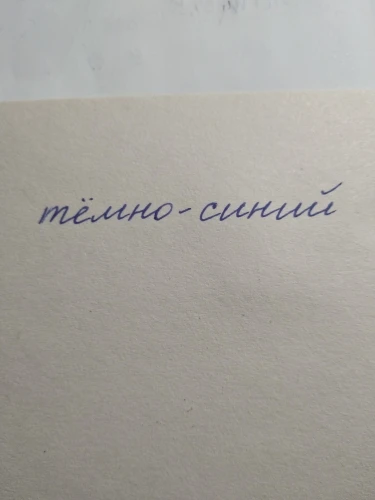 тёмно-синий